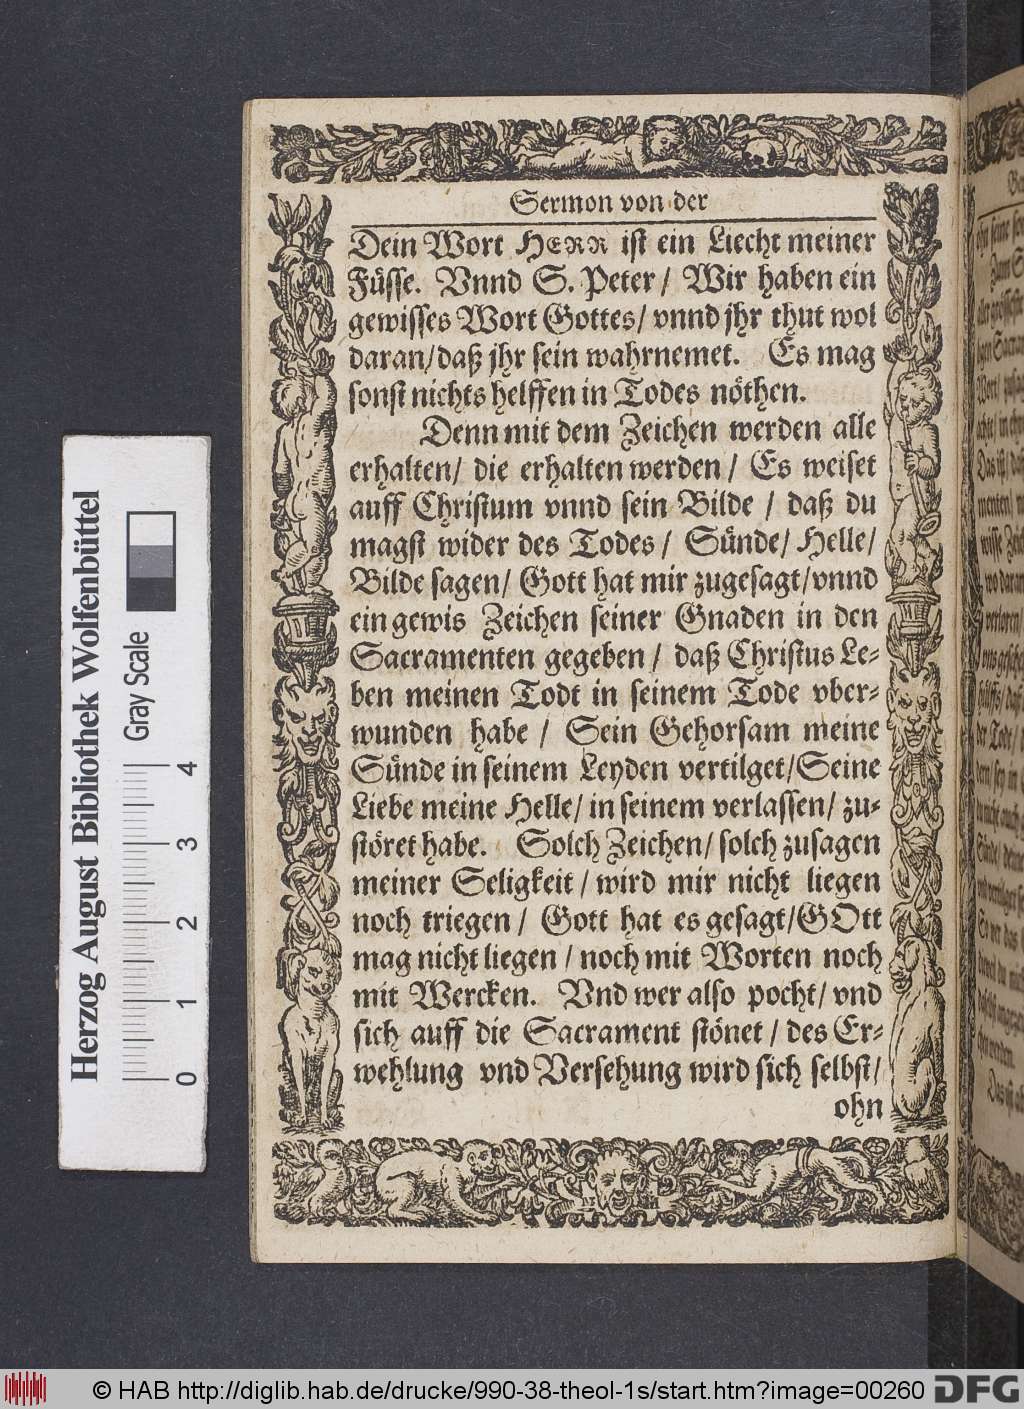 Sermon von der
Dein Wort HERR ist ein Liecht meiner
Füsse. Vnnd S. Peter / Wir haben ein
gewisses Wort Gottes / vnnd jhr thut wol
daran / daß jhr sein wahrnemet. Es mag
sonst nichts helffen in Todes nöthen.
Denn mit dem Zeichen werden alle
erhalten / die erhalten werden / Es weiset
auff Christum vnnd sein Bilde / daß du
magst wider des Todes / Sünde / Helle /
Bilde sagen / Gott hat mir zugesagt / vnnd
ein gewis Zeichen seiner Gnaden in den
Sacramenten gegeben / daß Christus Le-
ben meinen Todt in seinem Tode vber-
wunden habe / Sein Gehorsam meine
Sünde in seinem Leyden vertilget / Seine
Liebe meine Helle / in seinem verlassen / zu-
störet habe. Solch Zeichen / solch zusagen
meiner Seligkeit / wird mir nicht liegen
noch triegen / Gott hat es gesagt / GOtt
mag nicht liegen / noch mit Worten noch
mit Wercken. Vnd wer also pocht / vnd
sich auff die Sacrament stönet / des Er-
wehlung vnd Versehung wird sich selbst /
ohn
Herzog August Bibliothek Wolfenbüttel
Gray Scale
0 1 2 3 4
© HAB http://diglib.hab.de/drucke/990-38-theol-1s/start.htm?image=00260
DFG